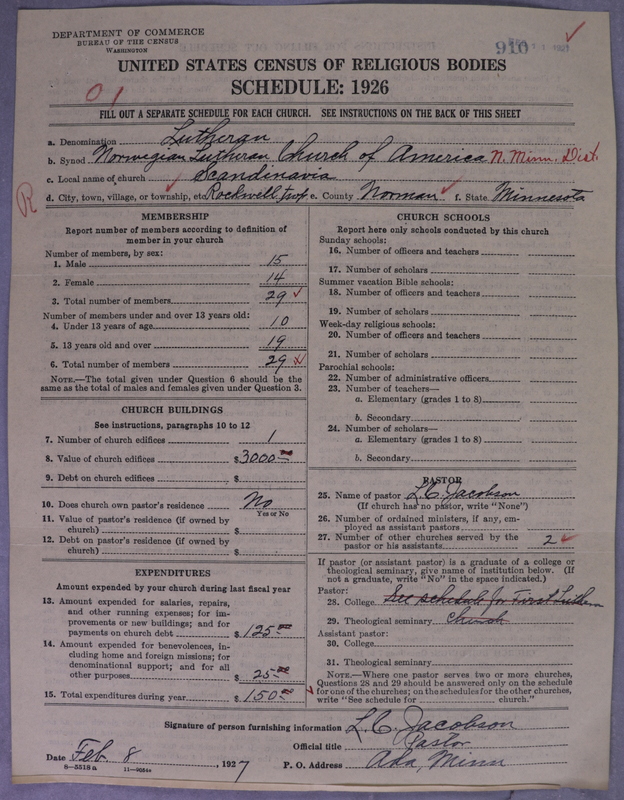 DEPARTMENT OF COMMERCE
BUREAU OF THE CENSUS
WASHINGTON
910
UNITED STATES CENSUS OF RELIGIOUS BODIES
SCHEDULE: 1926
01
FILL OUT A SEPARATE SCHEDULE FOR EACH CHURCH. SEE INSTRUCTIONS ON THE BACK OF THIS SHEET
a. Denomination Lutheran
b. Synod Norwegian Lutheran Church of America N. Minn. Dist.
c. Local name of church Scandinavia
R
d. City, town, village, or township, etc. Rockwell twp e. County Norman f. State Minnesota
MEMBERSHIP
Report number of members according to definition of
member in your church
Number of members, by sex:
1. Male 15
2. Female 14
3. Total number of members 29
Number of members under and over 13 years old:
4. Under 13 years of age 10
5. 13 years old and over 19
6. Total number of members 29
NOTE.—The total given under Question 6 should be the
same as the total of males and females given under Question 3.
CHURCH BUILDINGS
See instructions, paragraphs 10 to 12
7. Number of church edifices 1
8. Value of church edifices $3000
9. Debt on church edifices $
10. Does church own pastor's residence No
Yes or No
11. Value of pastor's residence (if owned by
church) $
12. Debt on pastor's residence (if owned by
church) $
EXPENDITURES
Amount expended by your church during last fiscal year
13. Amount expended for salaries, repairs,
and other running expenses; for im-
provements or new buildings; and for
payments on church debt $125.00
14. Amount expended for benevolences, in-
cluding home and foreign missions; for
denominational support; and for all
other purposes $25
15. Total expenditures during year $150.00
CHURCH SCHOOLS
Report here only schools conducted by this church
Sunday schools:
16. Number of officers and teachers
17. Number of scholars
Summer vacation Bible schools:
18. Number of officers and teachers
19. Number of scholars
Week-day religious schools:
20. Number of officers and teachers
21. Number of scholars
Parochial schools:
22. Number of administrative officers
23. Number of teachers—
a. Elementary (grades 1 to 8)
b. Secondary
24. Number of scholars—
a. Elementary (grades 1 to 8)
b. Secondary
PASTOR
25. Name of pastor L. C. Jacobson
(If church has no pastor, write "None")
26. Number of ordained ministers, if any, em-
ployed as assistant pastors
27. Number of other churches served by the
pastor or his assistants 2
If pastor (or assistant pastor) is a graduate of a college or
theological seminary, give name of institution below. (If
not a graduate, write "No" in the space indicated.)
Pastor:
28. College See schedule for First Luthern
29. Theological seminary Church
Assistant pastor:
30. College
31. Theological seminary
NOTE.—Where one pastor serves two or more churches,
Questions 28 and 29 should be answered only on the schedule
for one of the churches; on the schedules for the other churches,
write "See schedule for church."
Signature of person furnishing information L. C. Jacobson
Official title Pastor
Date Feb. 8, 1927 P. O. Address Ada, Minn
8-5518a 11-9054a